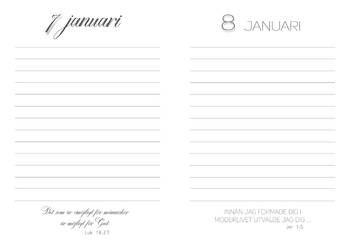 7 januari
Det som är omöjligt för människor
är möjligt för Gud.
Luk 18:27
8 JANUARI
INNAN JAG FORMADE DIG I
MODERLIVET UTVALDE JAG DIG ...
Jer 1:5